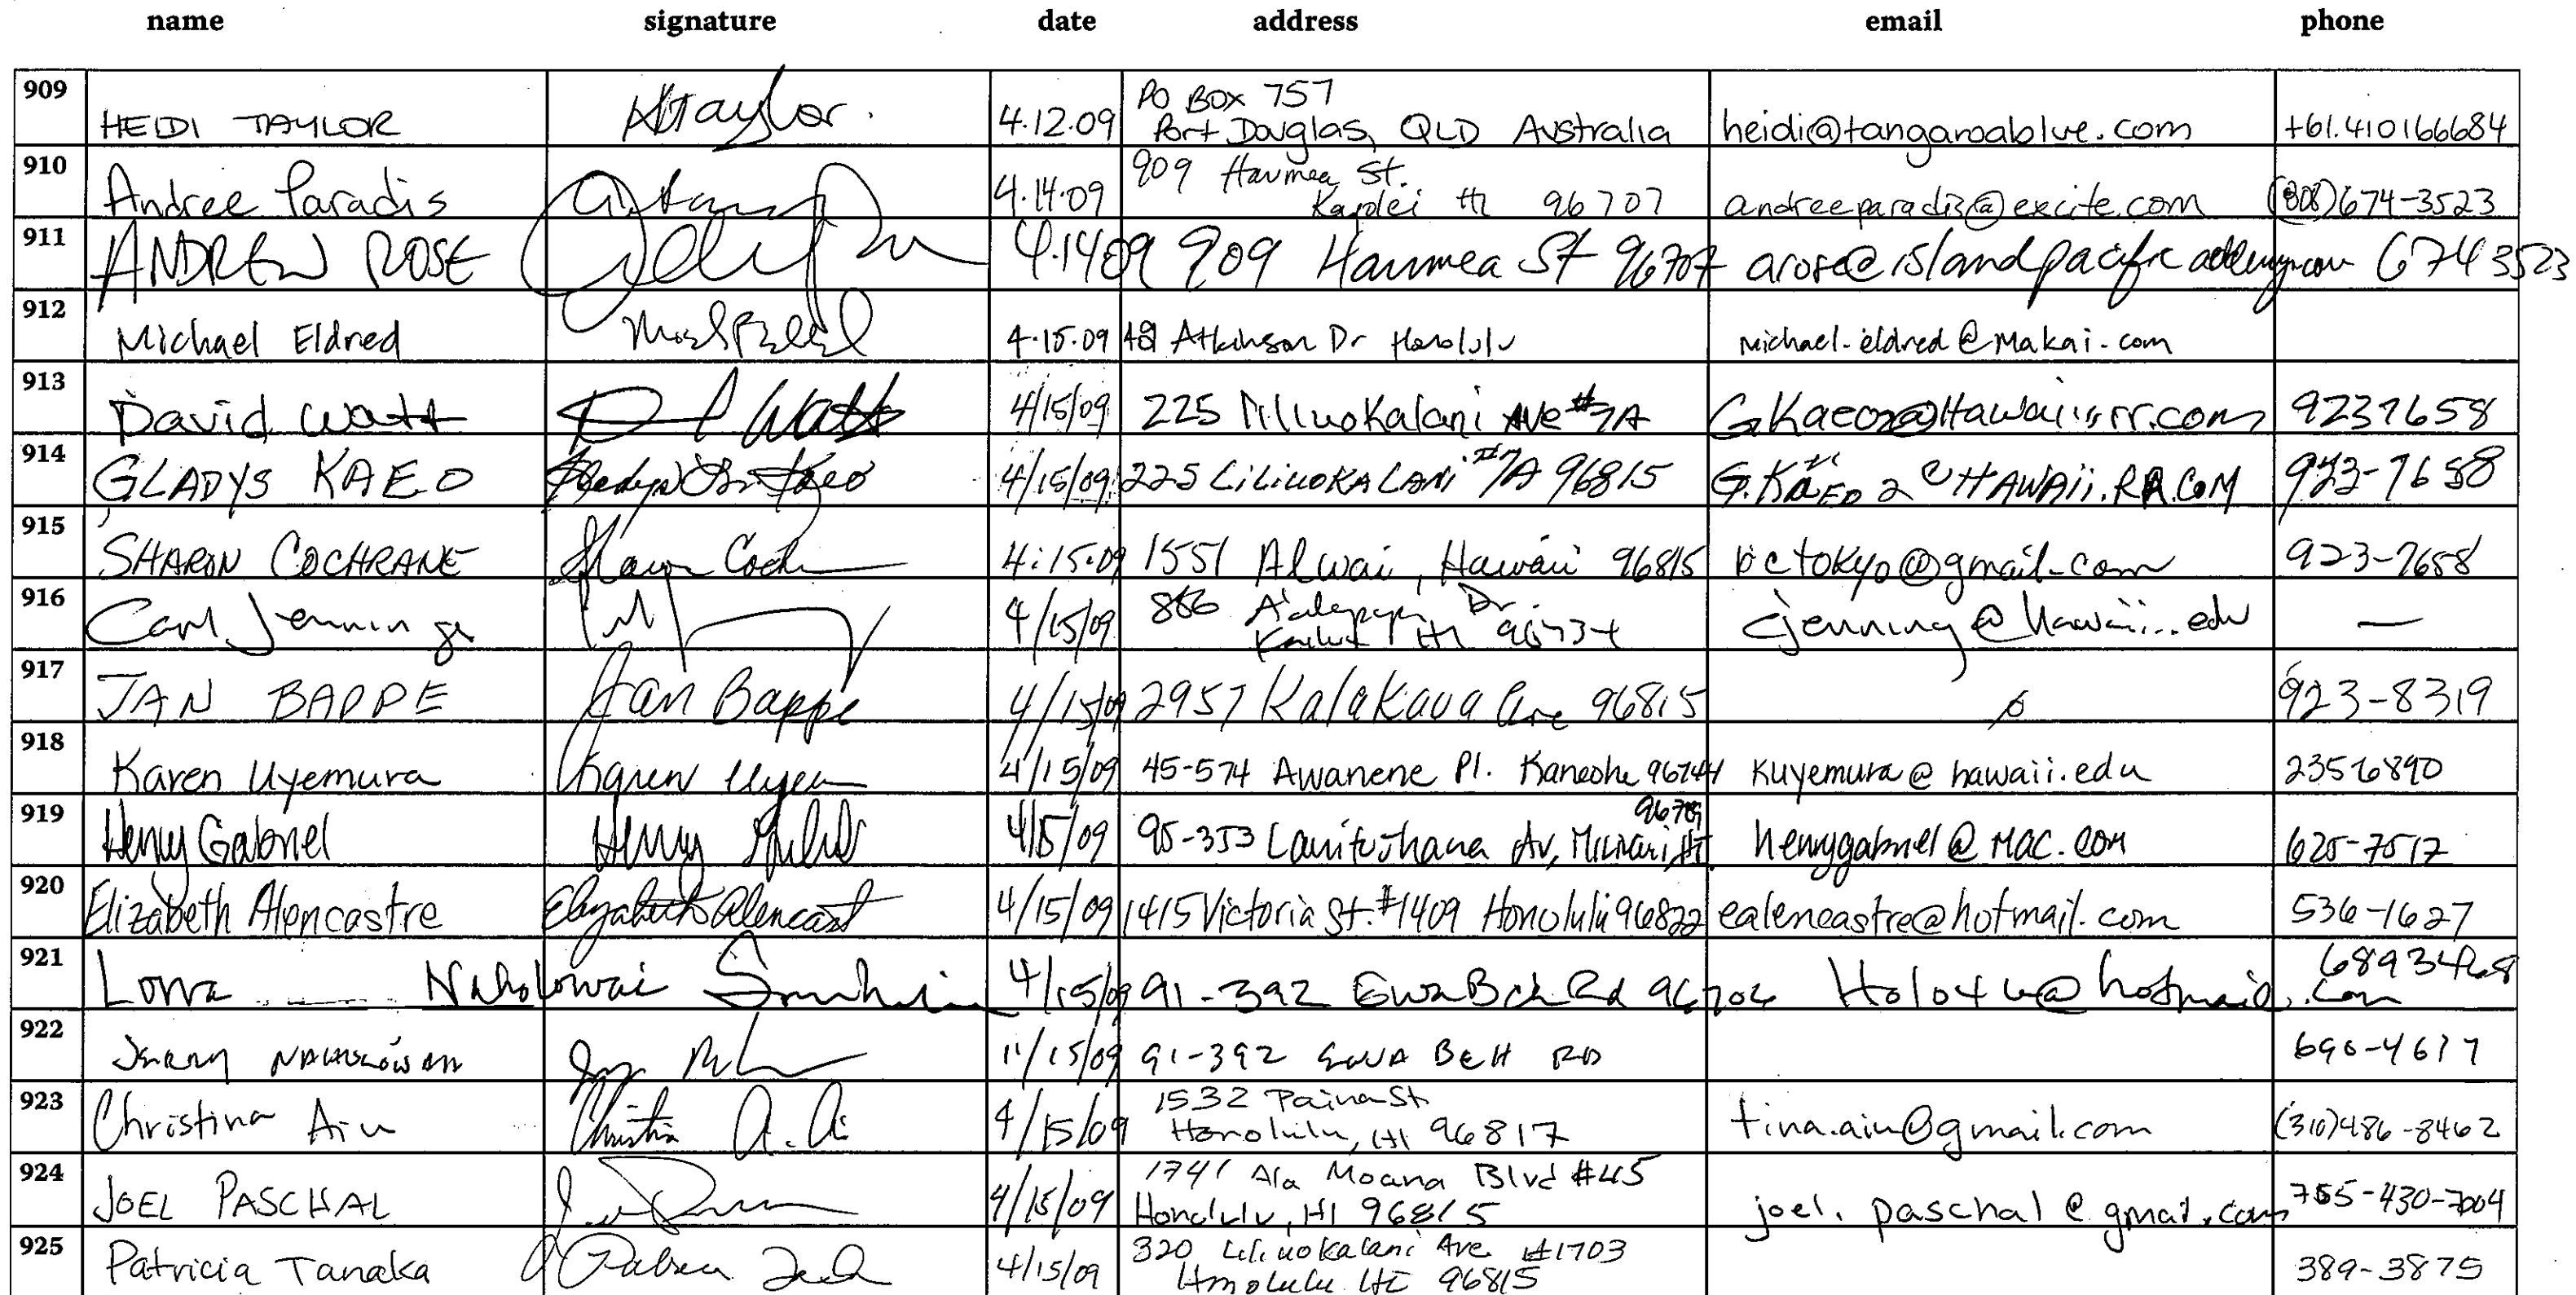 name signature date address email phone
909 HEIDI TAYLOR HTaylor. 4.12.09 PO BOX 757
Port Douglas, QLD Australia heidi@tangaroablue.com +61.410166684
910 Andree Paradis 4.14.09 909 Haumea St.
Kapolei HI 96707 andreeparadis@excite.com (808)674-3523
911 ANDREW ROSE 4.1409 909 Haumea St 96707 arose@islandpacific 674 3523
912 Michael Eldred 4.15.09 Atkinson Dr Honolulu michael.eldred@makai.com
913 David Watt D Watt 4/15/09 225 Liliuokalani Ave #7A 9237658
914 GLADYS KAEO 4/15/09 225 LiLiuoKALANi #7A 96815 923-7658
915 SHARON COCHRANE 4.15.09 1551 Alwai, Hawaii 96815 923-7658
916 Carl Jennings 4/15/09 Dr.
HI 96734 cjenning@hawaii.edu —
917 JAN BAPPE Jan Bappe 4/15/09 2957 Kalakaua Ave 96815 923-8319
918 Karen Uyemura Karen Uyem 4/15/09 45-574 Awanene Pl. Kaneohe 96744 kuyemura@hawaii.edu 2356890
919 Henry Gabriel Henry 4/15/09 95-353 Av, Mililani, HI henrygabriel@mac.com 625-7517
920 Elizabeth Alencastre Elizabeth Alencast 4/15/09 1415 Victoria St. #1409 Honolulu 96822 ealencastre@hotmail.com 536-1627
921 Lorra Naholowaa 4/15/09 91-392 Ewa Bch Rd 96706 6893468
922 Jerry 91-392 EWA BCH RD 690-4617
923 Christina Aiu Christina A. Ai 4/15/09 1532 Paina St.
Honolulu, HI 96817 tina.aiu@gmail.com (310)486-8462
924 JOEL PASCHAL 4/15/09 1741 Ala Moana Blvd #45
Honolulu, HI 96815 joel.paschal@gmail.com
925 Patricia Tanaka 4/15/09 320 Liliuokalani Ave. #1703
Honolulu HI 96815 389-3875